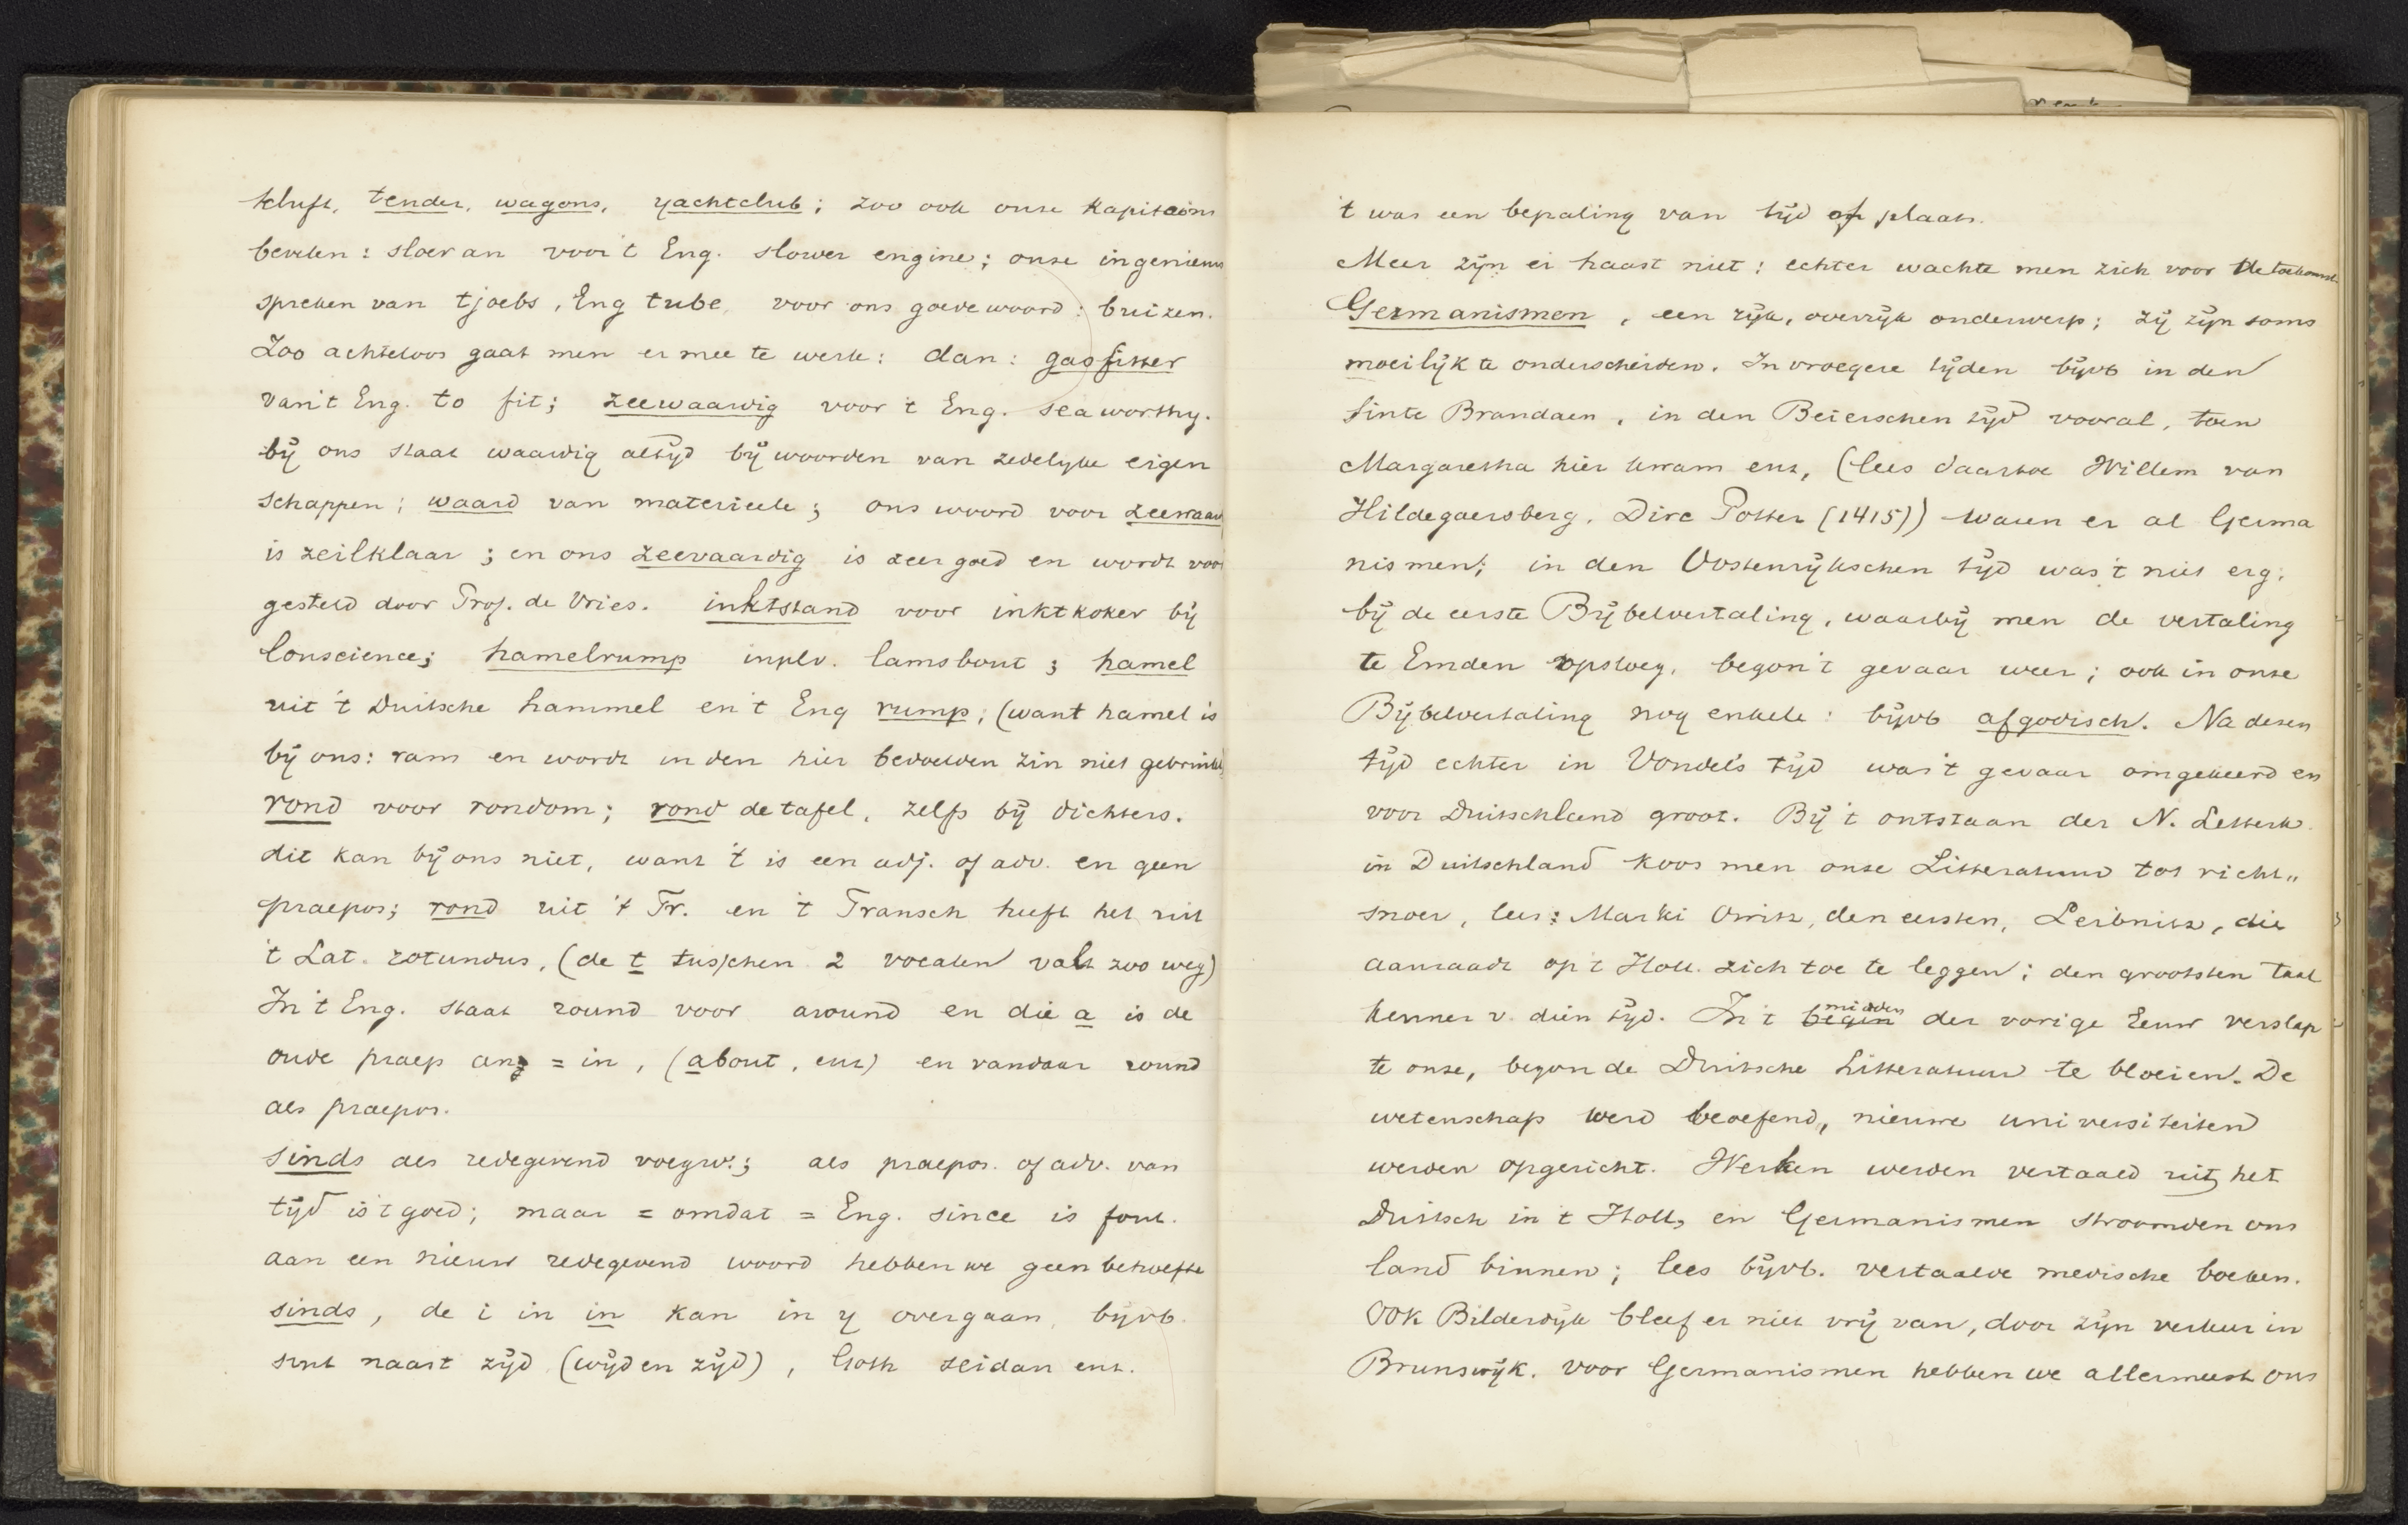 tender, wagons, yachtclub; zoo ook onze Kapiteins
bevelen: sloeran voor 't Eng. slower engine; onze ingenieurs
spreken van tjoebs, Eng tube, voor ons goede woord: buizen.
Zoo achteloos gaat men er mee te werk: dan: gasfitter
van 't Eng. to fit; zeewaardig voor 't Eng. sea worthy.
bij ons staat waardig altijd bij woorden van zedelijke eigen
schappen; waard van materieele; ons woord voor zeewaard
is zeilklaar; en ons zeevaardig is zeer goed en wordt voor
gesteld door Prof. de Vries. inktstand voor inktkoker bij
Conscience; hamelrump inplv. lamsbout; hamel
uit 't Duitsche hammel en 't Eng rump, (want hamel is
bij ons: ram en wordt in den hier bedoelden zin niet gebruikt)
rond voor rondom; rond de tafel, zelfs bij dichters.
dit kan bij ons niet, want 't is een adj. of adv. en geen
praepos; rond uit 't Fr. en 't Fransch heeft het uit
't Lat. rotundus, (de t tusschen 2 vocalen valt zoo weg)
In 't Eng. staat round voor around en die a is de
oude praep an = in, (about, enz) en vandaar round
als praepos.
sinds als redegevend voegw.; als praepos. of adv. van
tijd is 't goed; maar = omdat = Eng. since is fout.
aan een nieuw redegevend woord hebben we geen behoefte
sinds, de i in in kan in y overgaan, bijvb.
sint naast zijd (wijd en zijd), Goth seidan enz.
't was een bepaling van tijd of plaats.
Meer zijn er haast niet: echter wachte men zich voor de toekomst.
Germanismen, een rijk, overrijk onderwerp; zij zijn soms
moeilijk te onderscheiden. In vroegere tijden bijvb in den
Sinte Brandaen, in den Beierschen tijd vooral, toen
Margaretha hier kwam enz, (lees daartoe Willem van
Hildegaersberg, Dirc Potter (1415)) waren er al Germa
nismen; in den Oostenrijkschen tijd was 't niet erg.
bij de eerste Bijbelvertaling, waarbij men de vertaling
te Emden opsloeg, begon 't gevaar weer; ook in onze
Bijbelvertaling nog enkele: bijvb afgodisch. Na dezen
tijd echter in Vondels tijd was 't gevaar omgekeerd en
voor Duitschland groot. Bij 't ontstaan der N. Letterk.
in Duitschland koos men onze Litteratuur tot richt„
snoer, lees: Opitz, den eersten, Leibnitz, die
aanraadt op 't Holl. zich toe te leggen; den grootsten taal
kenner v. dien tijd. In 't begin midden der vorige Eeuw verslap
te onze, begon de Duitsche Litteratuur te bloeien. De
wetenschap werd beoefend, nieuwe universiteiten
werden opgericht. Werken werden vertaald uit het
Duitsch in 't Holl, en Germanismen stroomden ons
land binnen; lees bijvb. vertaalde medische boeken.
Ook Bilderdijk bleef er niet vrij van, door zijn verkeer in
Brunswijk. voor Germanismen hebben we allermeest ons